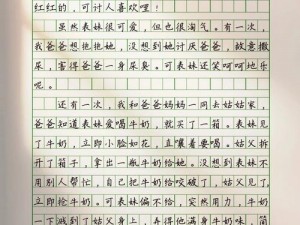 红红的，可讨人喜欢哩！
虽然表妹很可爱，但也很淘气。有一次，
我爸爸想抱抱她，没想到她讨厌爸爸，故意撒
尿，害得爸爸一身尿臭。可表妹还笑呵呵地乐
呢。
还有一次，我和爸爸妈妈一同去姑姑家，
爸爸知道表妹爱喝牛奶，就买了一箱。表妹见
了牛奶，立即小脸如花，直嚷着要喝。姑父又
打开了箱子，拿出一瓶牛奶给她。没想到表妹不
用别人帮忙，自己把牛奶给咬破了，姑父见了，
立即抢牛奶。可表妹偏不给，突然用力，牛奶
一下溅到了姑父身上，弄得他满身牛奶味，简